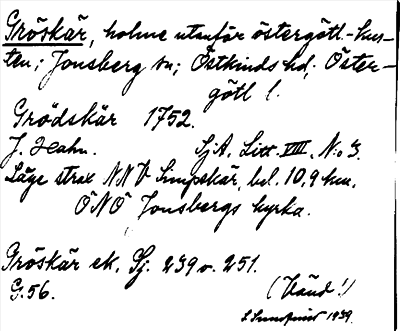 Gröskär, holme utanför östergötl.-kus-
ten; Jonsberg sn; Östkinds hd; Öster-
götl l.
Grödskär 1752.
J. Hahn. SjA, Litt. VIII, No 3.
Läge strax NNV Simpskär, bel. 10,9 km.
ÖNÖ Jonsbergs kyrka.
Gröskär ek. Sj. 239 v. 251.
G:56. (Vänd!)
1939.